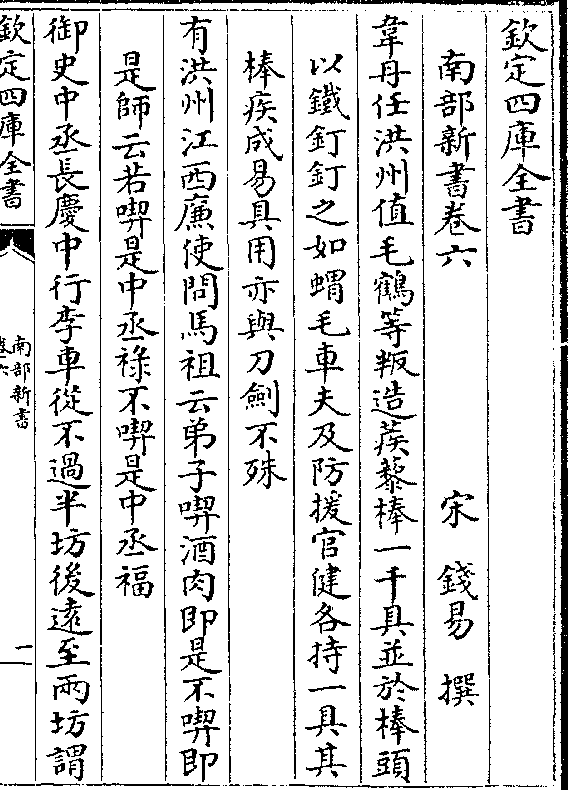 欽定四庫全書
南部新書卷六
宋 錢易 撰
韋丹任洪州值毛鶴等叛造蒺藜棒一千具並於棒頭
以鐵釘釘之如蝟毛車夫及防援官健各持一具其
棒疾成易具用亦與刀劍不殊
有洪州江西廉使問馬祖云弟子喫酒肉即是不喫即
是師云若喫是中丞祿不喫是中丞福
御史中丞長慶中行李車從不過半坊後遠至兩坊謂
欽定四庫全書
南部新書
卷六
一